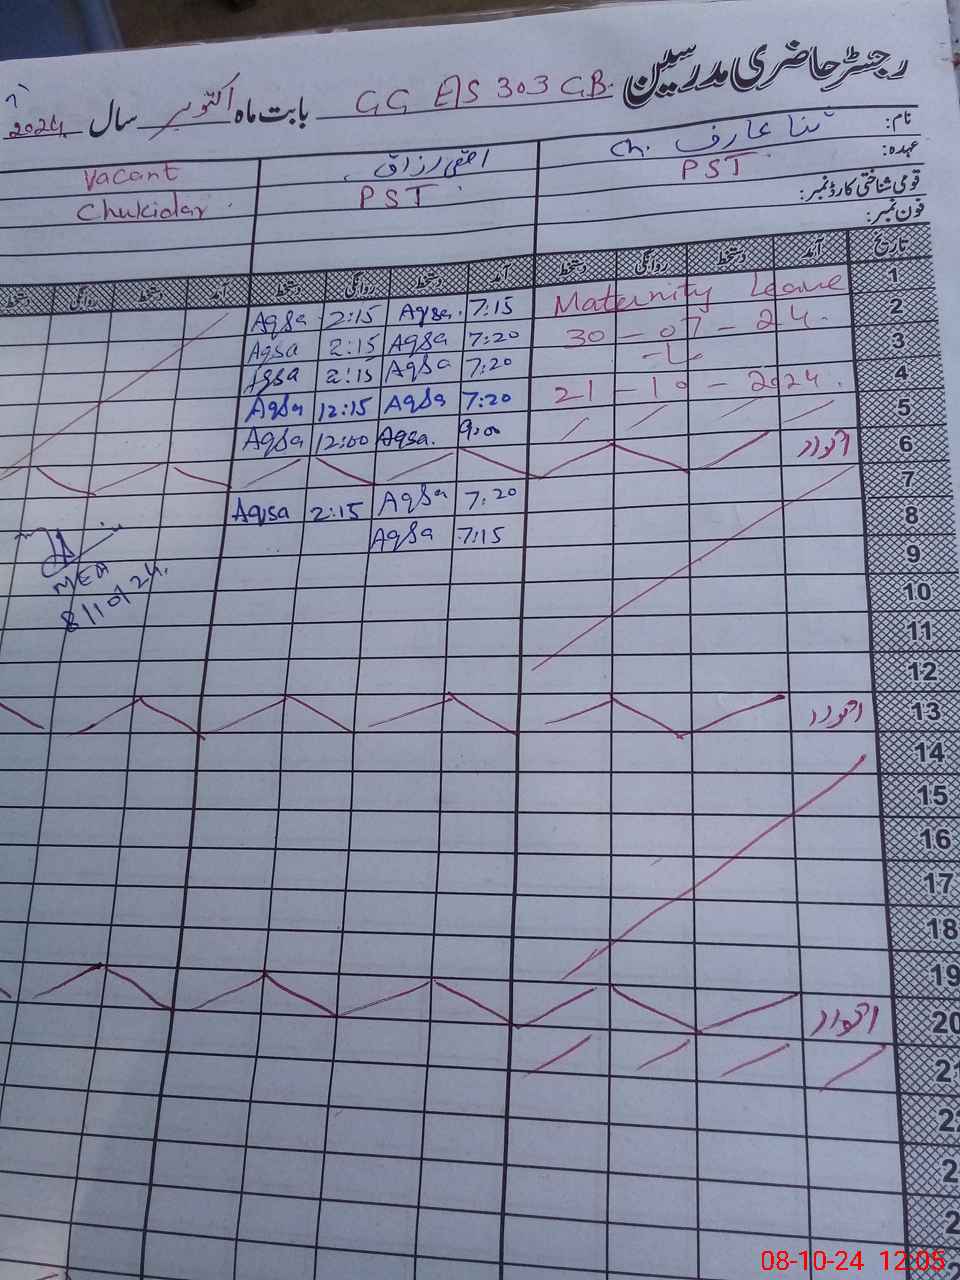 رجسٹر حاضری مدرسین
GG E/S 303 GB. بابت ماہ اکتوبر سال 2024
نام: ثنا عارف Ch. اقصیٰ رزاق Vacant
عہدہ: PST PST Chukidar
قومی شناختی کارڈ نمبر:
فون نمبر:
تاریخ آمد دستخط روانگی دستخط آمد دستخط روانگی دستخط آمد دستخط روانگی دستخط
1 Maternity Leave 7:15 Aqsa. 2:15 Aqsa
2 30-07-24. 7:20 Aqsa 2:15 Aqsa
3 7:20 Aqsa 2:15 Aqsa
4 21-10-2024. 7:20 Aqsa 12:15 Aqsa
5 9:00 Aqsa. 12:00 Aqsa
6 اتوار
7 7:20 Aqsa 2:15 Aqsa
8 7:15 Aqsa
MEA
8/10/24.
9
10
11
12
13 اتوار
14
15
16
17
18
19
20 اتوار
21
08-10-24 12:05